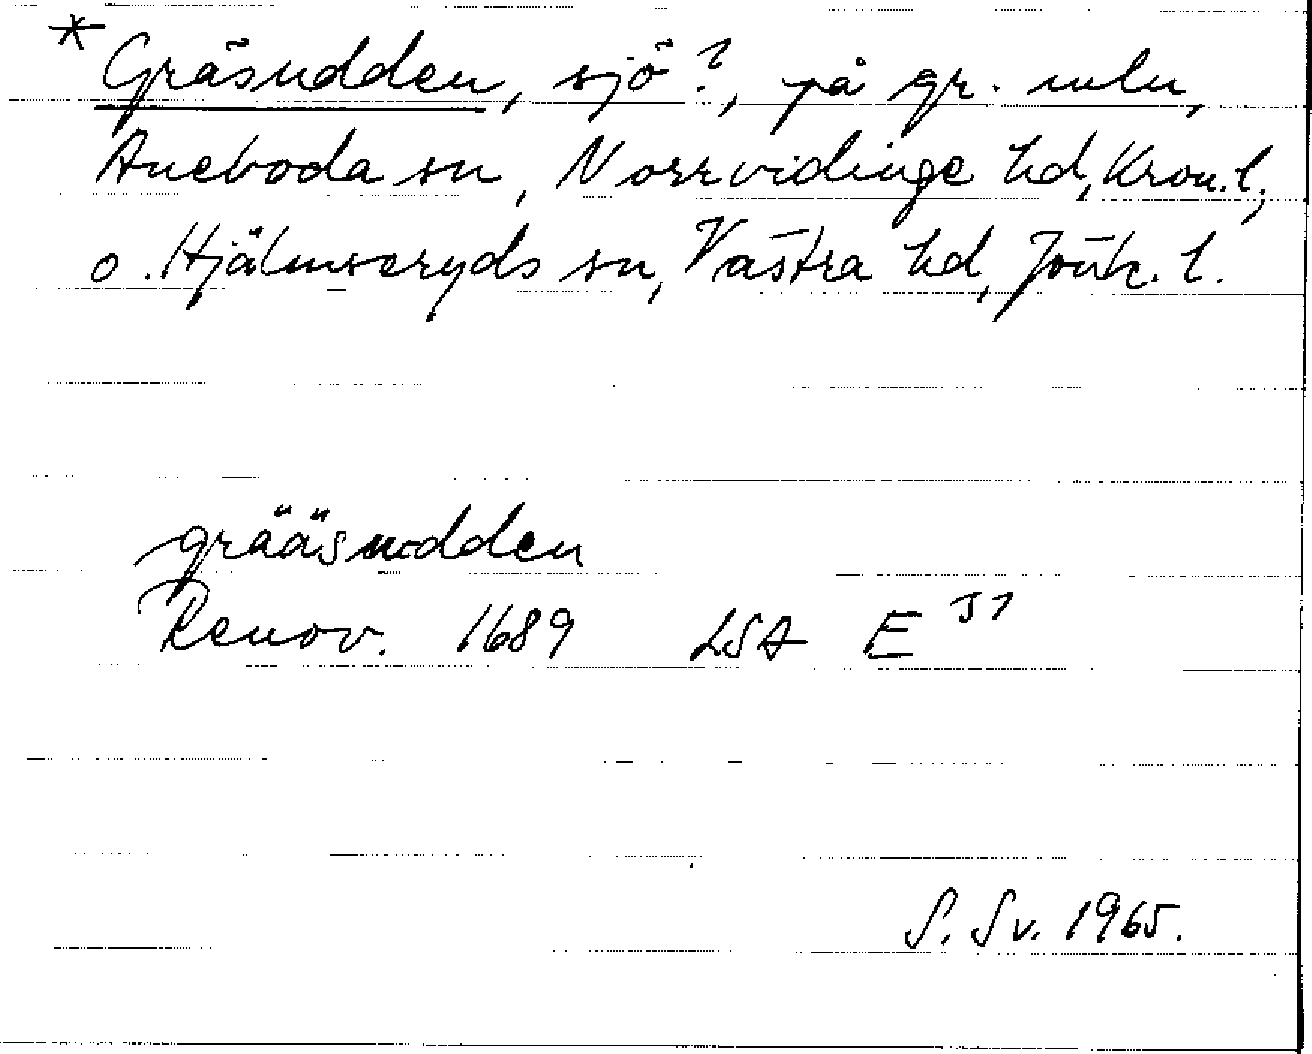 * Gräsudden, sjö?, på gr. mln,
Aneboda sn, Norrvidinge hd, Kron. l.,
o. Hjälmseryds sn, Västra hd, Jönk. l.
grääsudden
Renov. 1689 LSA E
S. Sv. 1965.